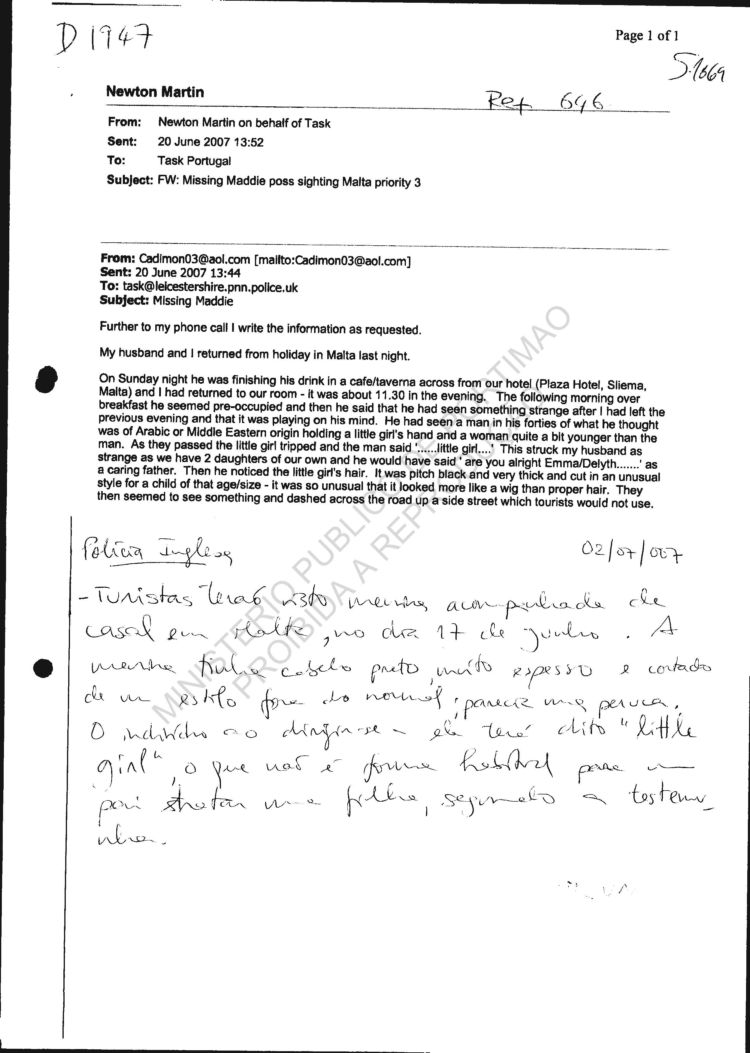 D 1947
Page 1 of 1
S.1669
Newton Martin
Ref 646
From: Newton Martin on behalf of Task
Sent: 20 June 2007 13:52
To: Task Portugal
Subject: FW: Missing Maddie poss sighting Malta priority 3
From: Cadimon03@aol.com [mailto:Cadimon03@aol.com]
Sent: 20 June 2007 13:44
To: task@leicestershire.pnn.police.uk
Subject: Missing Maddie
Further to my phone call I write the information as requested.
My husband and I returned from holiday in Malta last night.
On Sunday night he was finishing his drink in a cafe/taverna across from our hotel (Plaza Hotel, Sliema,
Malta) and I had returned to our room - it was about 11.30 in the evening. The following morning over
breakfast he seemed pre-occupied and then he said that he had seen something strange after I had left the
previous evening and that it was playing on his mind. He had seen a man in his forties of what he thought
was of Arabic or Middle Eastern origin holding a little girl's hand and a woman quite a bit younger than the
man. As they passed the little girl tripped and the man said '......little girl....' This struck my husband as
strange as we have 2 daughters of our own and he would have said ' are you alright Emma/Delyth.......' as
a caring father. Then he noticed the little girl's hair. It was pitch black and very thick and cut in an unusual
style for a child of that age/size - it was so unusual that it looked more like a wig than proper hair. They
then seemed to see something and dashed across the road up a side street which tourists would not use.
MINISTERIO PUBLICO PORTIMAO
PROIBIDA A REPRODUÇÃO
Polícia Inglesa 02/07/007
- Turistas terão visto menina acompanhada de
casal em Malta, no dia 17 de Junho. A
menina tinha cabelo preto, muito espesso e cortado
de um estilo fora do normal; parecia uma peruca.
O indivíduo ao dirigir-se a ela terá dito "little
girl", o que não é forma habitual para um
pai tratar uma filha, segundo a testemu_
nha.